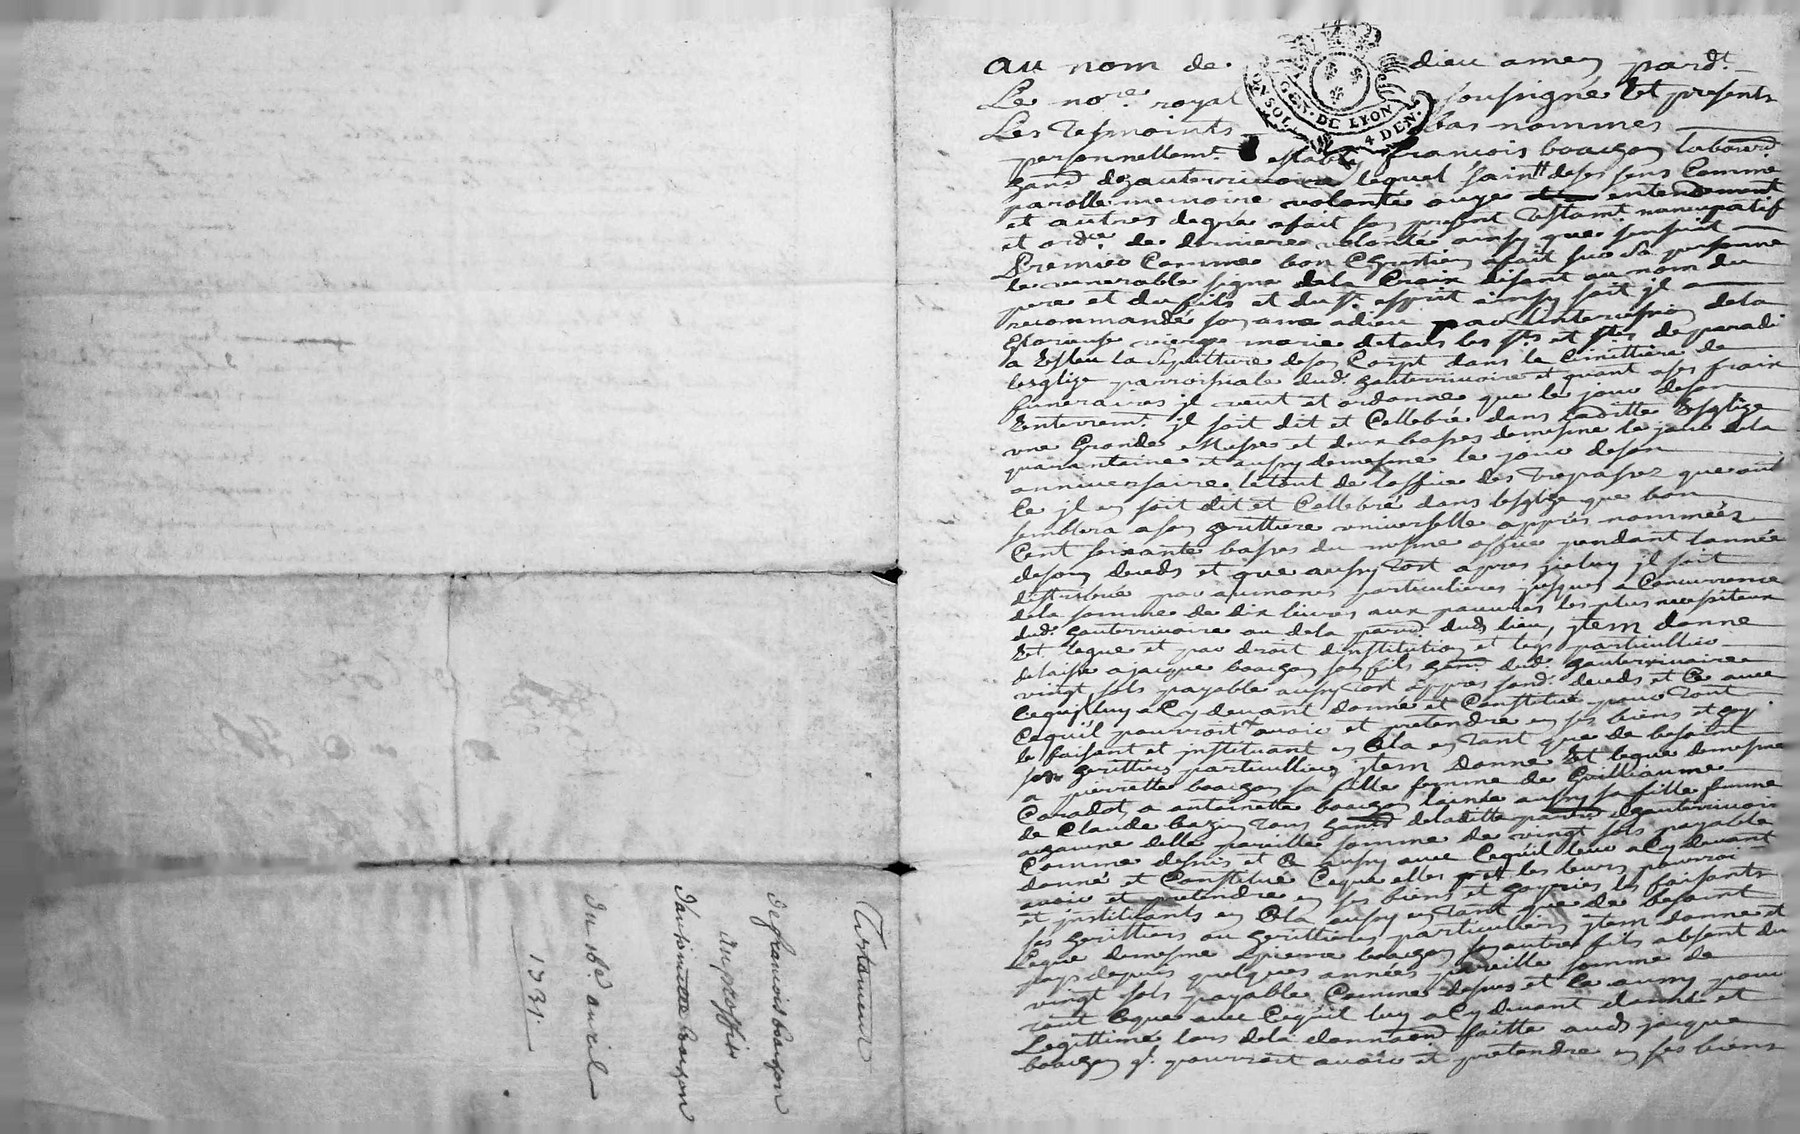 au nom de dieu amen pard.t
Le no.re royal soussigné Et presents
Les Tesmoints bas nommés
GEN. DE LYON
UN SOL 4 DEN.
personnellemt. estably francois bourgon laboureur
lequel de ses sens Comme
parolle memoire volonté ouye entendement
et autres degré a fait son present Testamt. nuncupatif
et ordre de derniere volonté ainsy que sensuit
Premier Comme bon Chrestien a fait sur Sa personne
le venerable signe dela Croix disant au nom du
pere et du fils et du st. esprit ainsy soit jl a
recommandé son ame a dieu par Lintercession dela
Glorieuse vierge marie de tous les sts et stes de paradi
a Esleu la Sepulture de son Corpt dans le Cimittiere de
lesglize parroissiale dud. hauterivoire et quant a ses fraix
funeraires jl veut et ordonne que le jour de son
Enterremt. jl soit dit et Cellebré dans laditte Esglize
une Grande Messe et deux basses de mesme le jour dela
quarantaine et aussy de mesme le jour de son
anniversaire le tout de loffice des Trepassez que outre
Ce jl en soit dit et Cellebré dans lesglize que bon
semblera a son herittiere universelle appres nommée
Cent soixante basses du mesme office pendant lannée
de son deceds et que aussy tost apres jceluy jl soit
distribué par aumones particulieres jusques a Concurrence
dela somme de dix livres aux pauvres les plus necessiteux
dud. hauterivoire ou dela parr. dud. lieu, jtem donne
Et legue et par droit dinstitution et legs particullier
delaisse a jacque bourgon son fils dud. hauterivoire
vingt sols payable aussy tost appres sond. deceds et Ce avec
Cequil luy a Cy devant donné et Constitué pour tout
Cequil pourroit avoir et pretendre en ses biens et
le faisant et jnstituant en Cela en tant que de besoint
son herittier particullier jtem donne Et legue de mesme
a pierrette bourgon sa fille femme de Guilliaume
Caradot, a antoinette bourgon lainée aussy sa fille femme
de Claude bazin tous de laditte parr. dhauterivoire
a chacune delle pareille somme de vingt sols payable
Comme dessus et Ce aussy avec Cequil leur a Cy devant
donné et Constitué Ceque elles et les leurs pourroit
avoir et pretendre en ses biens et hoyries les faisants
et jnstituants en Cela aussy en tant que de besoint
ses herittiers ou herittieres particulliers jtem donne et
Legue de mesme a pierre bourgon son autre fils absent du
pays depuis quelques années pareille somme de
vingt sols payable Comme dessus et Ce aussy pour
tout legue avec Cequil luy a Cy devant donné et
Legittime lors dela donnaon faitte aud. jacque
bourgon pourroit avoir et pretendre en ses biens
Testament
de francois bourgon
au proffit
dantoinette bourgon
du 16.e auvril
1731